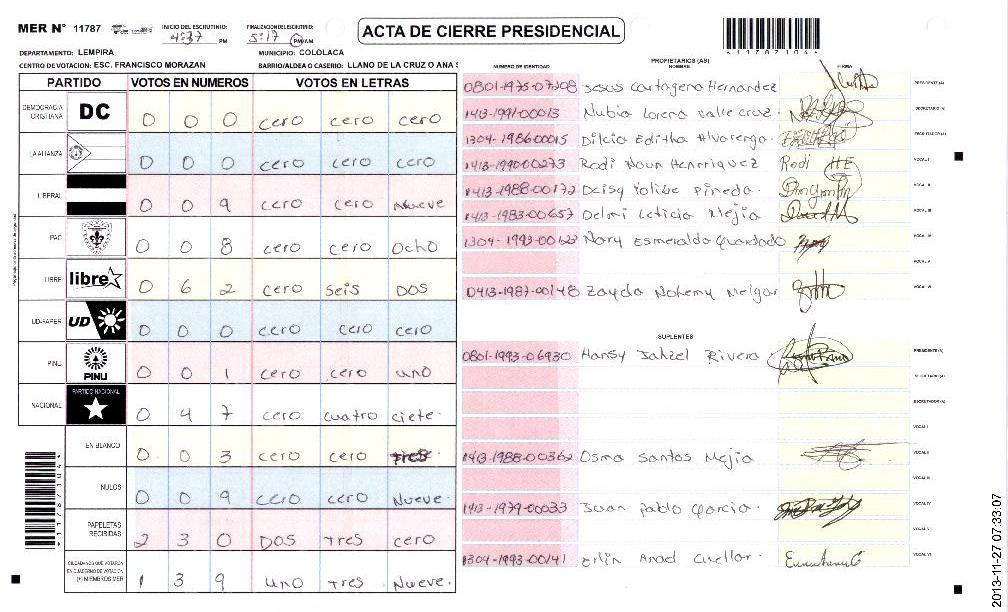 MER N° 11787
INICIO DEL ESCRUTINIO: 4:37 PM
FINALIZACION DEL ESCRUTINIO: 5:17 PM/AM
ACTA DE CIERRE PRESIDENCIAL
*11787104*
DEPARTAMENTO: LEMPIRA MUNICIPIO: COLOLACA
CENTRO DE VOTACION: ESC. FRANCISCO MORAZAN BARRIO/ALDEA O CASERIO: LLANO DE LA CRUZ O ANA S
PARTIDO VOTOS EN NUMEROS VOTOS EN LETRAS
DEMOCRACIA CRISTIANA DC 0 0 0 cero cero cero
LA ALIANZA 0 0 0 cero cero cero
LIBERAL 0 0 9 cero cero Nueve
PAC 0 0 8 cero cero Ocho
LIBRE libre 0 6 2 cero seis DOS
UD-FAPER UD 0 0 0 cero cero cero
PINU PINU 0 0 1 cero cero uno
NACIONAL PARTIDO NACIONAL 0 4 7 cero cuatro ciete.
EN BLANCO 0 0 3 cero cero tres
NULOS 0 0 9 cero cero Nueve.
PAPELETAS RECIBIDAS 2 3 0 DOS tres cero
CIUDADANOS QUE VOTARON EN CUADERNO DE VOTACION (+) MIEMBROS MER 1 3 9 uno tres Nueve.
*11787104*
PROPIETARIOS (AS)
NUMERO DE IDENTIDAD NOMBRE FIRMA
0801-1975-07208 Jesus Cartagena Hernandez PRESIDENTE (A)
1413-1991-00013 Nubia Lorena valle cruz. SECRETARIO (A)
1304-1986-00015 Dilcia Editha Alvarenga. ESCRUTADOR (A)
1413-1990-00273 Rodi Noun Henrriquez Rodi HE VOCAL I
1413-1988-00172 Deisy Yolibe Pineda. VOCAL II
1413-1983-00657 Delmi Leticia Mejia VOCAL III
1304-1993-00622 Nory Esmeralda Quardado VOCAL IV
VOCAL V
0413-1987-00148 Zayda Nohemy Melgar VOCAL VI
SUPLENTES
0801-1993-06930 Hansy Jahzel Rivera PRESIDENTE (A)
SECRETARIO (A)
ESCRUTADOR (A)
VOCAL I
1413-1988-00362 Osma Santos Mejia VOCAL II
VOCAL III
1413-1979-00033 Juan Pablo Garcia. VOCAL IV
VOCAL V
1304-1993-00141 Erlin Anad Cuellar. VOCAL VI
2013-11-27 07:33:07